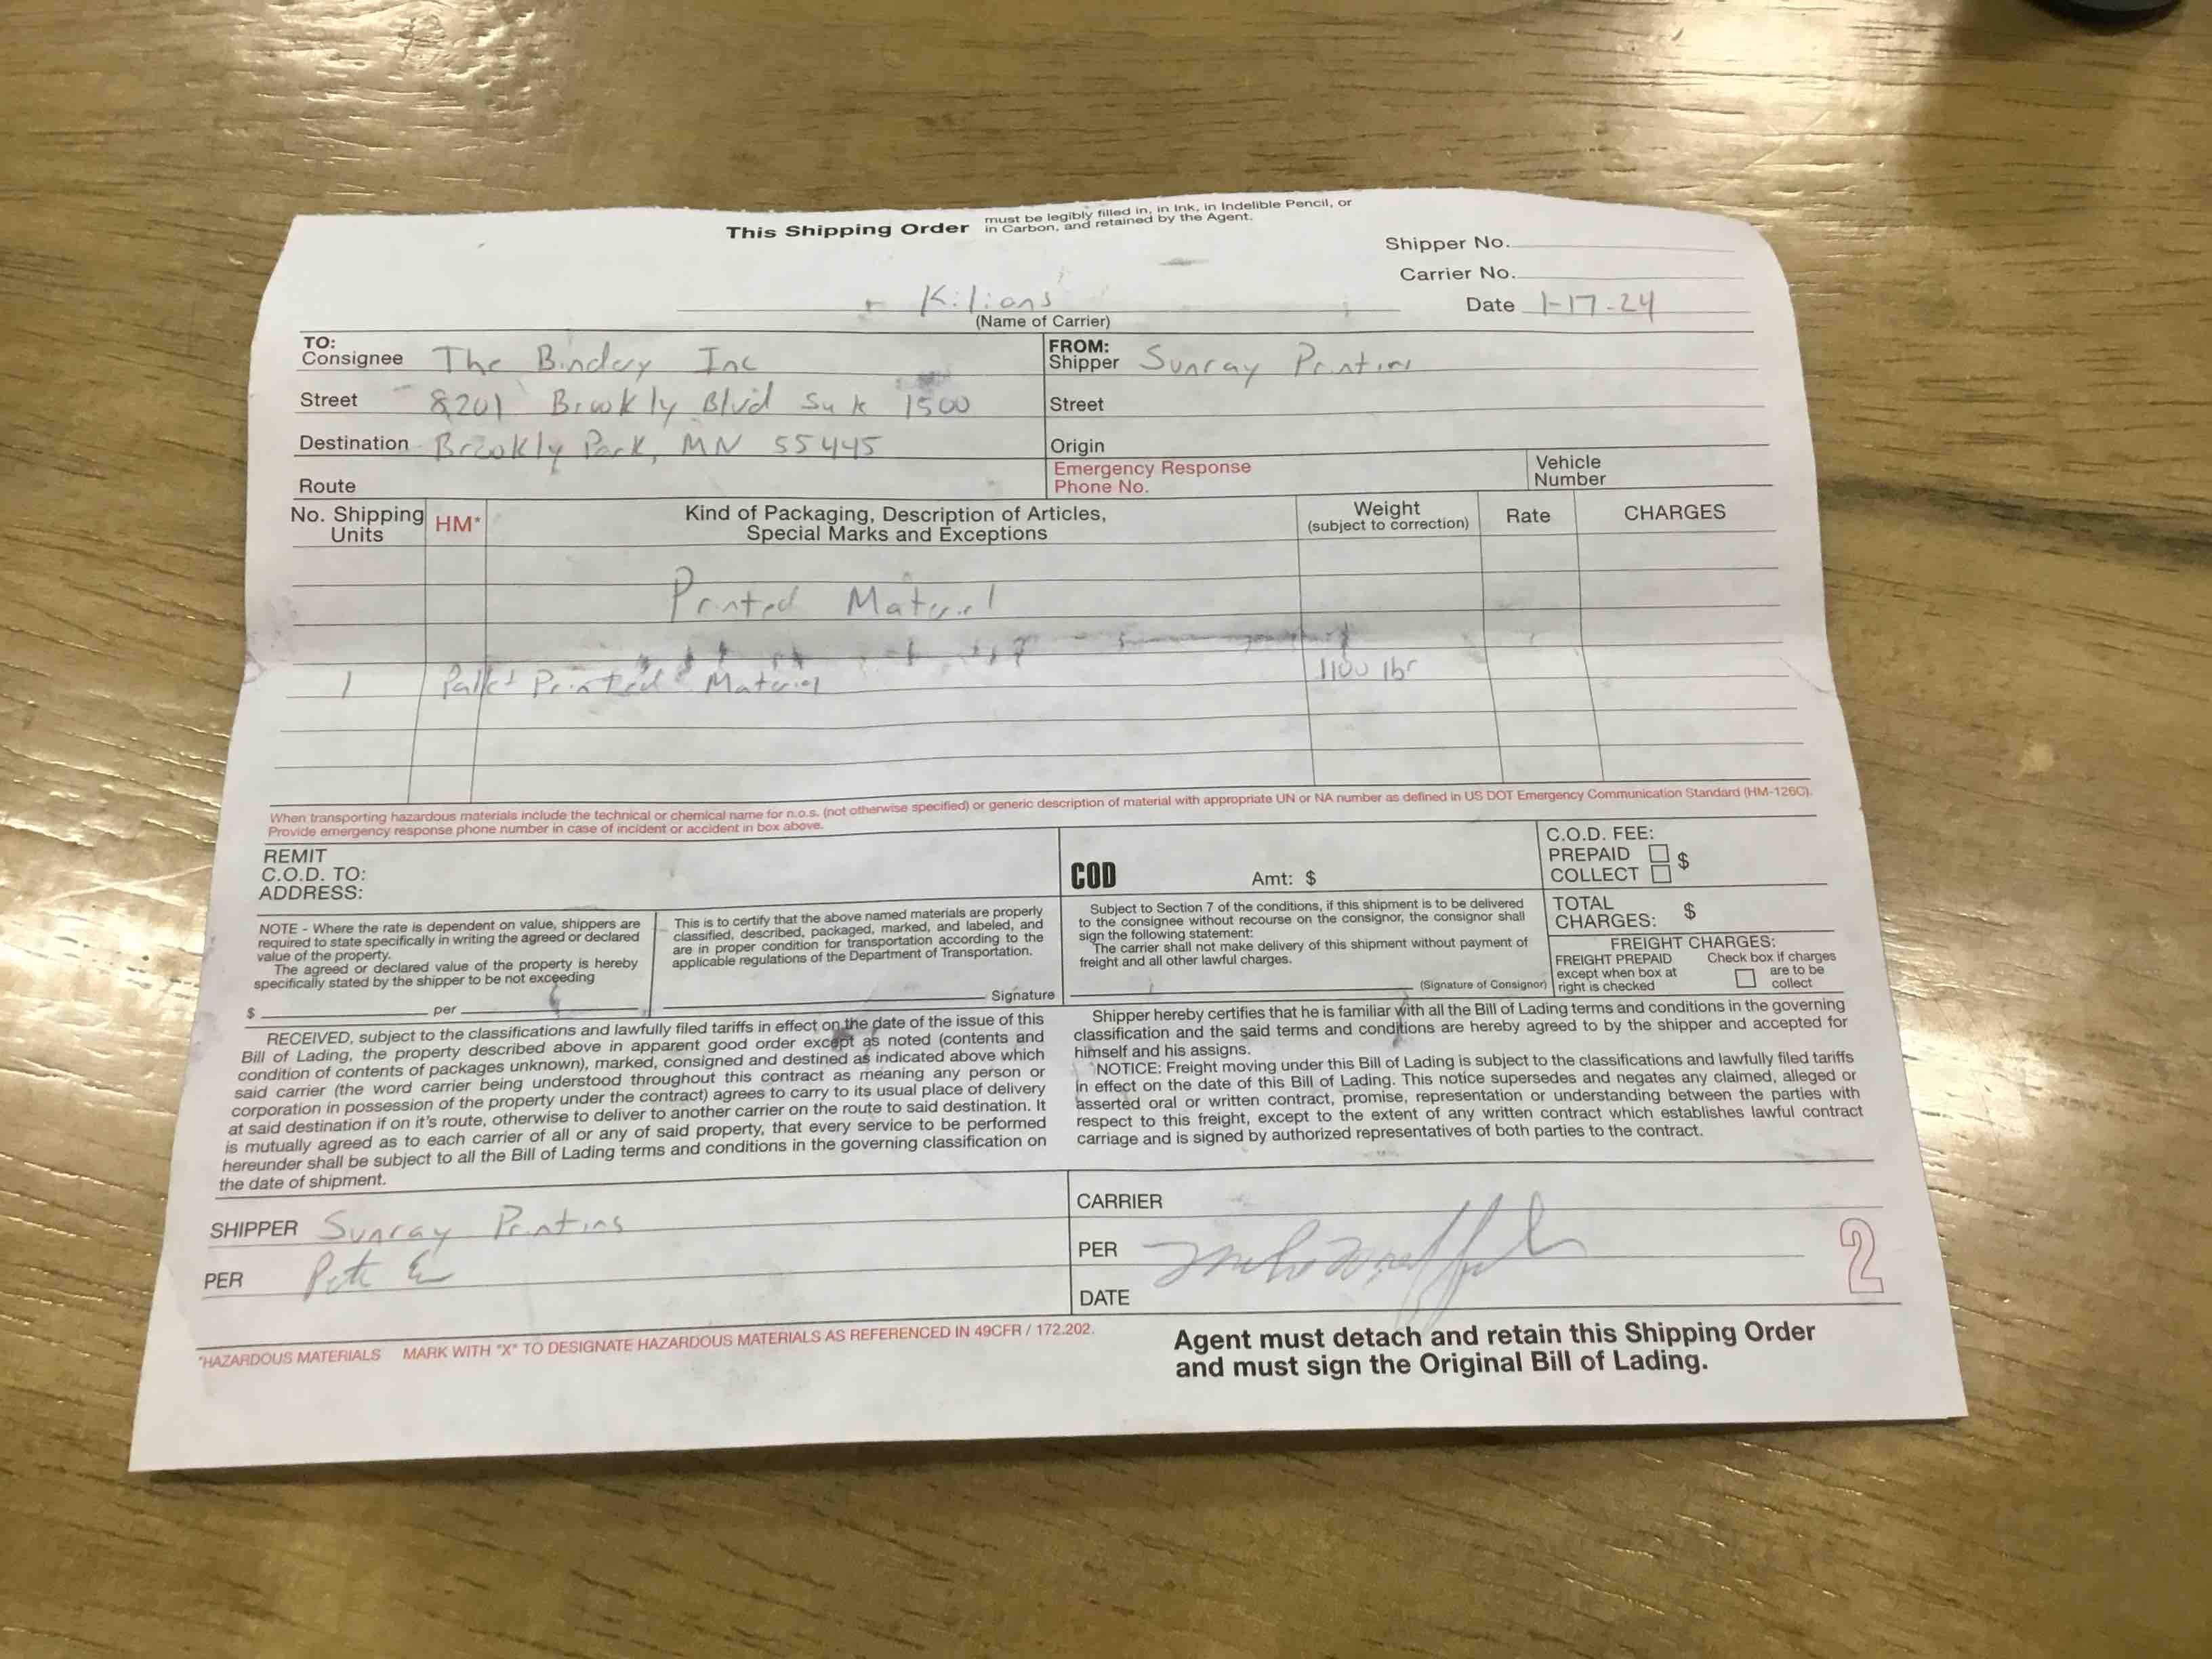 This Shipping Order must be legibly filled in, in Ink, in Indelible Pencil, or
in Carbon, and retained by the Agent.
Shipper No.
Carrier No.
Kilians
Date 1-17-24
(Name of Carrier)
TO:
Consignee The Bindery Inc
FROM:
Shipper Sunray Printing
Street 8201 Brookly Blvd 1500
Street
Destination Brookly Park, MN 55445
Origin
Route
Emergency Response
Phone No.
Vehicle
Number
No. Shipping
Units
HM*
Kind of Packaging, Description of Articles,
Special Marks and Exceptions
Weight
(subject to correction)
Rate
CHARGES
Printed Material
1 Pallet Printed Material 1100 lbs
When transporting hazardous materials include the technical or chemical name for n.o.s. (not otherwise specified) or generic description of material with appropriate UN or NA number as defined in US DOT Emergency Communication Standard (HM-126C).
Provide emergency response phone number in case of incident or accident in box above.
REMIT
C.O.D. TO:
ADDRESS:
COD Amt: $
C.O.D. FEE:
PREPAID $
COLLECT
NOTE - Where the rate is dependent on value, shippers are
required to state specifically in writing the agreed or declared
value of the property.
The agreed or declared value of the property is hereby
specifically stated by the shipper to be not exceeding
$ per
This is to certify that the above named materials are properly
classified, described, packaged, marked, and labeled, and
are in proper condition for transportation according to the
applicable regulations of the Department of Transportation.
Signature
Subject to Section 7 of the conditions, if this shipment is to be delivered
to the consignee without recourse on the consignor, the consignor shall
sign the following statement:
The carrier shall not make delivery of this shipment without payment of
freight and all other lawful charges.
(Signature of Consignor)
TOTAL
CHARGES: $
FREIGHT CHARGES:
FREIGHT PREPAID
except when box at
right is checked
Check box if charges
are to be
collect
RECEIVED, subject to the classifications and lawfully filed tariffs in effect on the date of the issue of this
Bill of Lading, the property described above in apparent good order except as noted (contents and
condition of contents of packages unknown), marked, consigned and destined as indicated above which
said carrier (the word carrier being understood throughout this contract as meaning any person or
corporation in possession of the property under the contract) agrees to carry to its usual place of delivery
at said destination if on it's route, otherwise to deliver to another carrier on the route to said destination. It
is mutually agreed as to each carrier of all or any of said property, that every service to be performed
hereunder shall be subject to all the Bill of Lading terms and conditions in the governing classification on
the date of shipment.
Shipper hereby certifies that he is familiar with all the Bill of Lading terms and conditions in the governing
classification and the said terms and conditions are hereby agreed to by the shipper and accepted for
himself and his assigns.
NOTICE: Freight moving under this Bill of Lading is subject to the classifications and lawfully filed tariffs
in effect on the date of this Bill of Lading. This notice supersedes and negates any claimed, alleged or
asserted oral or written contract, promise, representation or understanding between the parties with
respect to this freight, except to the extent of any written contract which establishes lawful contract
carriage and is signed by authorized representatives of both parties to the contract.
SHIPPER Sunray Printing
PER
CARRIER
PER
DATE
2
*HAZARDOUS MATERIALS MARK WITH "X" TO DESIGNATE HAZARDOUS MATERIALS AS REFERENCED IN 49CFR / 172.202.
Agent must detach and retain this Shipping Order
and must sign the Original Bill of Lading.